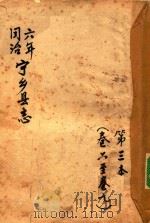 六年
同治
宁乡县志
第三本
(卷六至卷九)